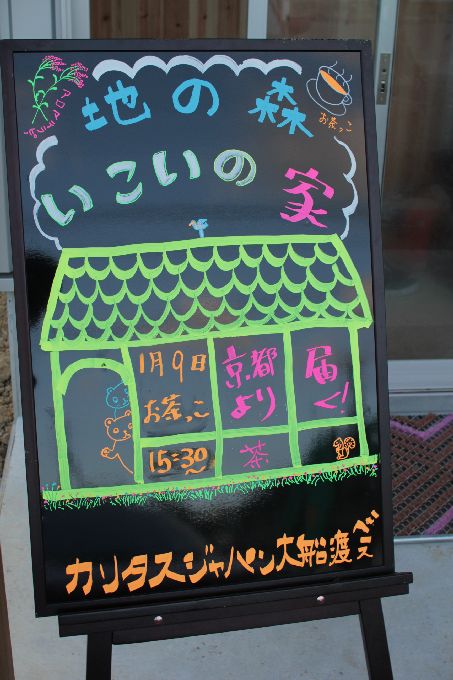 地の森
いこいの
家
アロマランプ
お茶っこ
1月9日
お茶っこ
15:30
京都
より
茶
届
く!
カリタスジャパン大船渡ベース